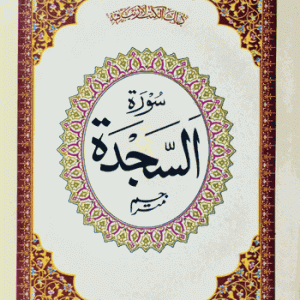 سُورَة
اَلسَّجْدَة
مترجم